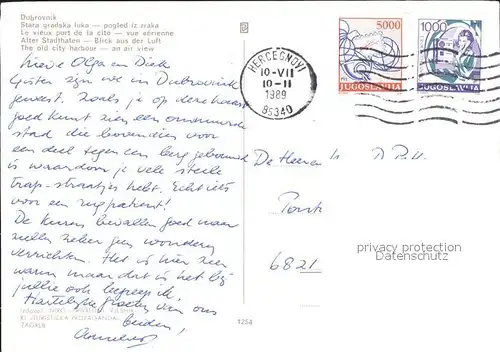 Dubrovnik
Stara gradska luka — pogled iz zraka
Le vieux port de la cité — vue aérienne
Alter Stadthafen — Blick aus der Luft
The old city harbour — an air view
Lieve Olga en Dick
Gisteren zijn we in Dubrovnik
geweest. Zoals je op deze kaart
goed kunt zien een ommuurde
stad die bovendien voor
een deel tegen een berg gebouwd
is waardoor je vele steile
trap-straatjes hebt. Echt iets
voor een rugpatient!
De kuren bevallen goed maar
zullen zeker geen wonderen
verrichten. Het is hier zeer
warm maar dat is het bij
jullie ook begreep ik.
Hartelijke groeten van ons
beiden,
ZAGREB
1254
HERCEGNOVI
10-VII
10-11
1989
85340
5000
JUGOSLAVIJA
1000
JUGOSLAVIJA
De Heer en
6821
privacy protection
Datenschutz